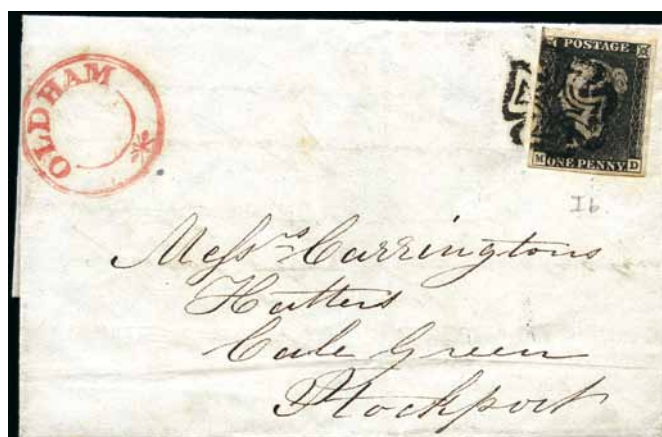 OLDHAM
POSTAGE
M ONE PENNY D
Ib.
Messrs Carringtons
Hatters
Cale Green
Stockport